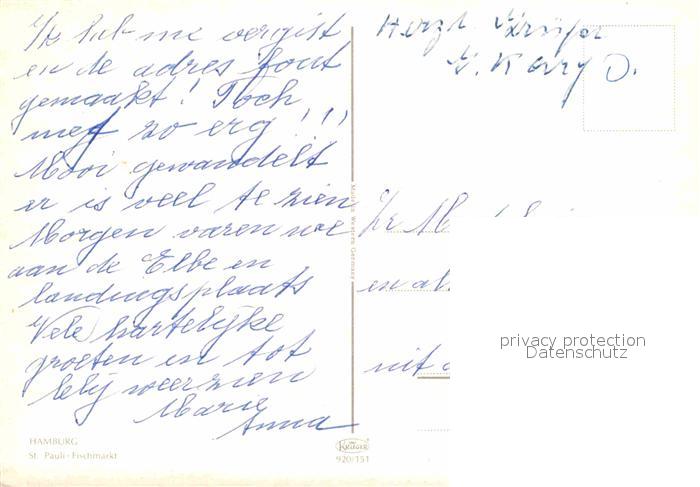 Ik heb me vergist
en de adres fout
gemaakt! Toch
niet zo erg!!!
Mooi gewandelt
er is veel te zien
Morgen varen we
aan de Elbe en
landingsplaats
Vele hartelijke
groeten en tot
blij weerzien
Marie
Anna
HAMBURG
St. Pauli - Fischmarkt
Made in Western Germany
KRÜGER
920/151
Herzl Grüße
en al
uit
privacy protection
Datenschutz